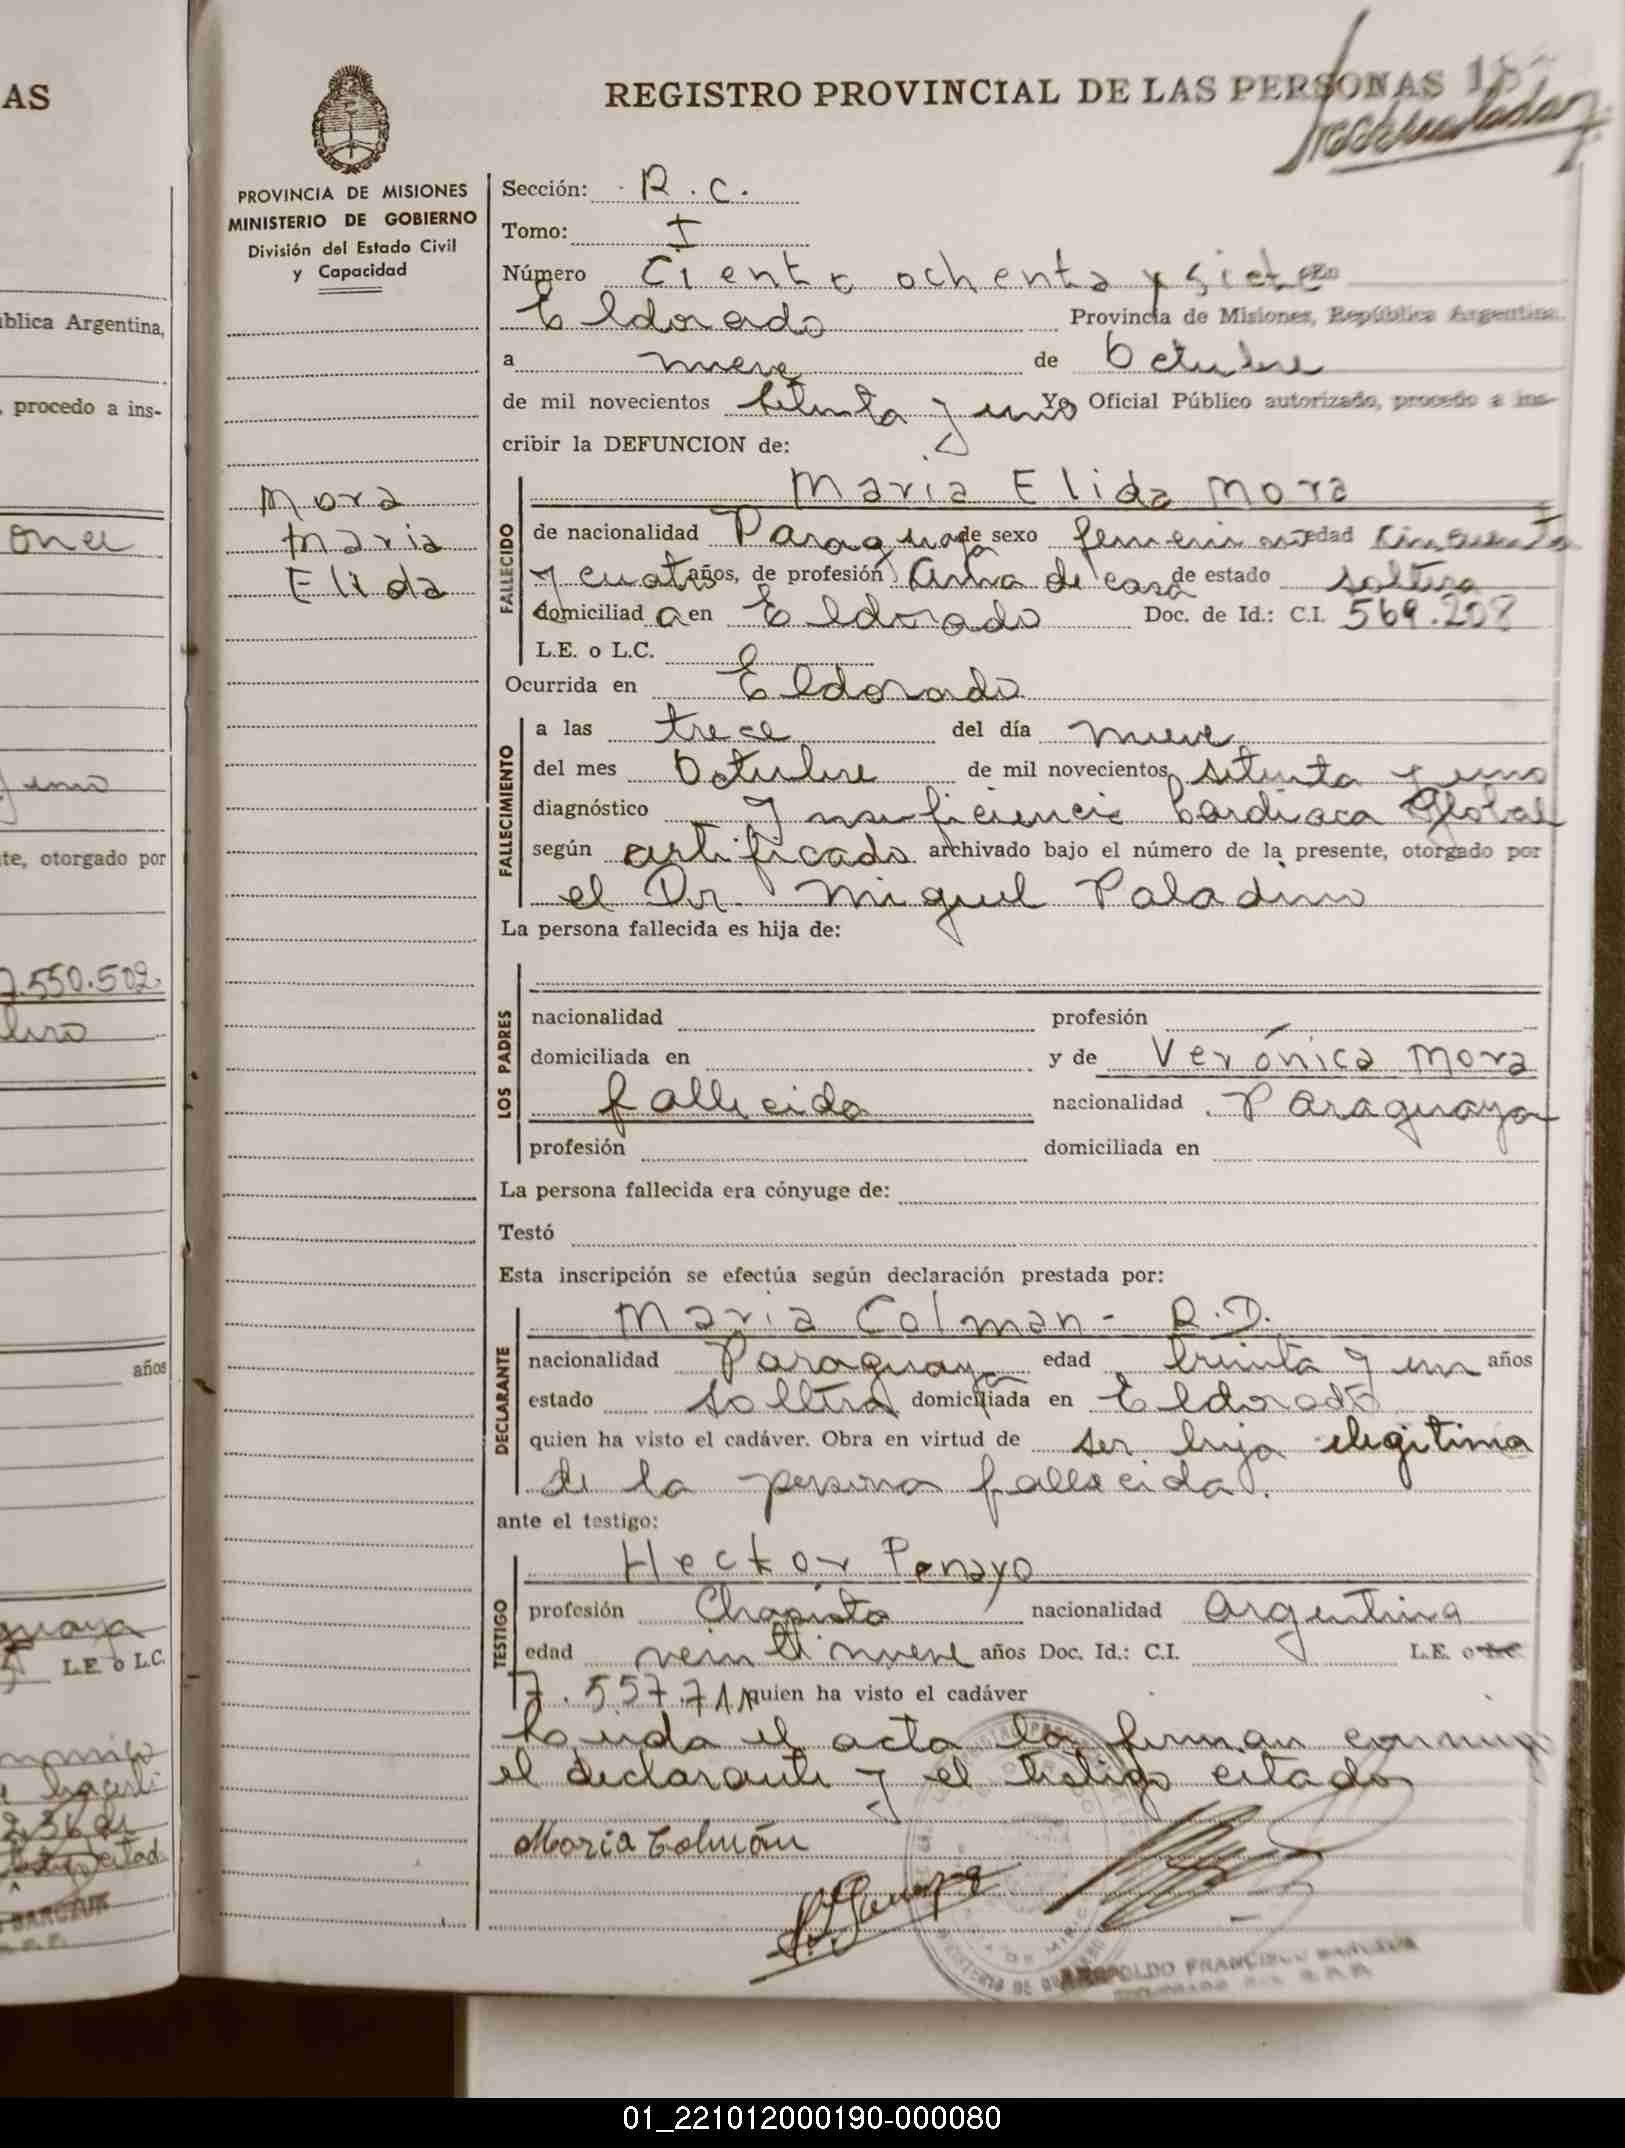 AS
REGISTRO PROVINCIAL DE LAS PERSONAS
PROVINCIA DE MISIONES
MINISTERIO DE GOBIERNO
División del Estado Civil
y Capacidad
Sección: R.C.
Tomo: I
Número Ciento ochenta y siete En
Eldorado Provincia de Misiones, República Argentina,
a nueve de Octubre
de mil novecientos setenta y uno Yo Oficial Público autorizado, procedo a ins-
cribir la DEFUNCION de:
Mora
Maria
Elida
FALLECIDO
Maria Elida Mora
de nacionalidad Paraguaya de sexo femenino edad cincuenta
y cuatro años, de profesión Ama de casa de estado soltera
domiciliada en Eldorado Doc. de Id.: C.I. 569.208
L.E. o L.C.
Ocurrida en Eldorado
FALLECIMIENTO
a las trece del día nueve
del mes Octubre de mil novecientos setenta y uno
diagnóstico Insuficiencia Cardiaca Global
según certificado archivado bajo el número de la presente, otorgado por
el Dr. Miguel Paladino
La persona fallecida es hija de:
LOS PADRES
nacionalidad profesión
domiciliada en y de Verónica Mora
fallecida nacionalidad Paraguaya
profesión domiciliada en
La persona fallecida era cónyuge de:
Testó
Esta inscripción se efectúa según declaración prestada por:
DECLARANTE
Maria Colman - R.D.
nacionalidad Paraguaya edad treinta y un años
estado soltera domiciliada en Eldorado
quien ha visto el cadáver. Obra en virtud de ser hija ilegitima
de la persona fallecida.
ante el testigo:
TESTIGO
Hector Penayo
profesión Chapista nacionalidad Argentina
edad veintinueve años Doc. Id.: C.I. L.E. o L.C.
7.557.711 quien ha visto el cadáver
Leida el acta la firman conmigo
el declarante y el testigo citados
Maria Colmán
LEOPOLDO FRANCISCO
blica Argentina,
, procedo a ins-
te, otorgado por
7.550.502.
años
guaya
L.E. o L.C.
01_221012000190-000080